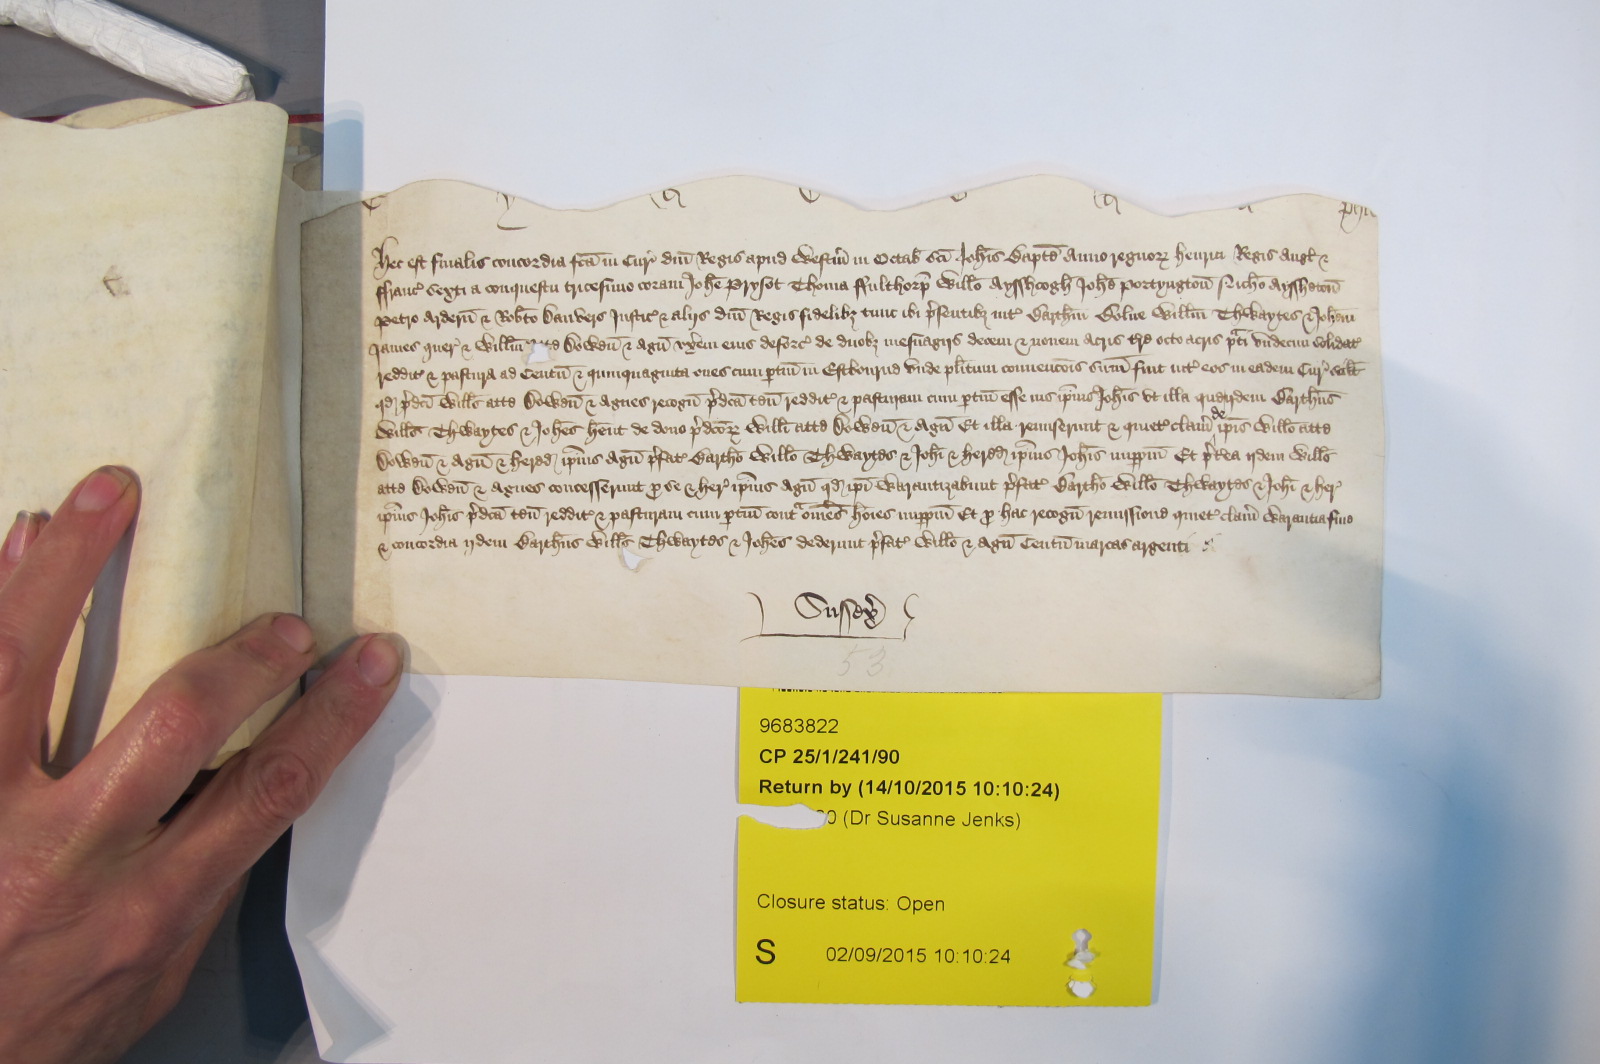 Hec est finalis concordia fca in Cur dni Regis apud Westm in Octab sci Johis Bapte Anno regnorz Henrici Regis Angl &
ffranc sexti a conquestu tricesimo coram Johe Prysot Thoma ffulthorp Willo Aysshcogh Johe Portyngton Nicho Aysshton
Petro Ardern & Robto Danvers Justic & alijs dni Regis fidelibz tunc ibi psentibz int Barthm Bolne Willm Thewaytes & Johem
James quer & Willm atte Dowdn & Agn uxem eius deforc de duobz mesuagijs decem & novem acris tre octo acris pti undecim solidat
reddit & pastura ad Centu & quinquaginta oves cum ptin in Estbourne unde plitum convencois sum fuit int eos in eadem Cur Scilt
qd pdci Wills atte Dowdn & Agnes recogn pdca ten reddit & pasturam cum ptin esse ius ipius Johis ut illa que ijdem Barthus
Wills Thewaytes & Johes hent de dono pdcorz Willi atte Dowdn & Agn Et illa remiserunt & quiet clam de ipis Willo atte
Dowdn & Agn & hered ipius Agn pfat Bartho Willo Thewaytes & Johi & hered ipius Johis imppm Et pterea ijdem Wills
atte Dowdn & Agnes concesserunt p se & her ipius Agn qd ipi Warantizabunt pfat Bartho Willo Thewaytes & Johi & her
ipius Johis pdca ten reddit & pasturam cum ptin cont omes hoies imppm Et p hac recogn remissione quiet clam Warantia fine
& concordia ijdem Barthus Wills Thewaytes & Johes dederunt pfat Willo & Agn Centu marcas argenti
Sussex
53
9683822
CP 25/1/241/90
Return by (14/10/2015 10:10:24)
0 (Dr Susanne Jenks)
Closure status: Open
S 02/09/2015 10:10:24